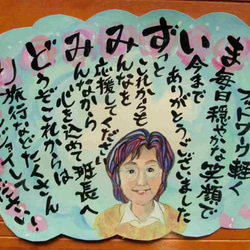 ま
フットワーク軽く
毎日穏やかな笑顔で
い
今まで
ありがとうございました
ずっと
これからも
みんなを
応援してください
みんなから
心を込めて 班長へ
どうぞこれからは
り旅行などたくさん
ジョイしてください